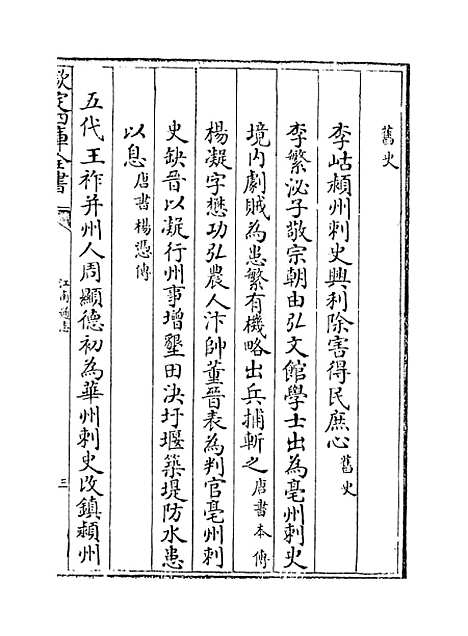 舊史
李岵潁州刺史興利除害得民庶心舊史
李繁泌子敬宗朝由弘文館學士出為亳州刺史
境内劇賊為患繁有機略出兵捕斬之唐書本傳
楊凝字懋功弘農人汴帥董晉表為判官亳州刺
史缺晉以凝行州事増墾田決圩堰築堤防水患
以息唐書楊憑傳
五代王祚并州人周顯德初為華州刺史改鎮潁州
欽定四庫全書
江南通志
三